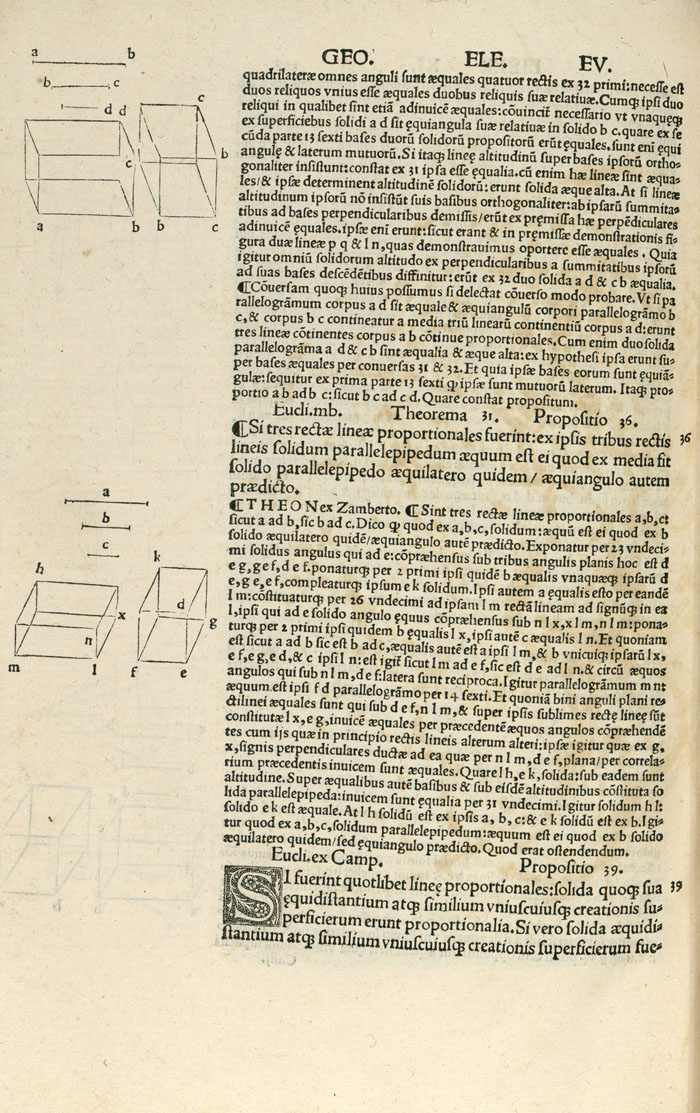 GEO. ELE. EV.
quadrilateræ omnes anguli sunt æquales quatuor rectis ex 32 primi: necesse est
duos reliquos vnius esse æquales duobus reliquis suæ relatiuæ. Cumq; ipsi duo
reliqui in qualibet sint etiā adinuicē æquales: cōuincit̄ necessario vt vnaqueq;
ex superficiebus solidi a d sit equiangula suæ relatiuæ in solido b c. quare ex se
cūda parte 13 sexti bases duorū solidorū propositorū erūt equales. sunt eni ęqui
angulę & laterum mutuorū. Si itaq; lineę altitudinū super bases ipsorū ortho⸗
gonaliter insistunt: constat ex 31 ipsa esse ęqualia. cū enim hæ lineæ sint æqua⸗
les / & ipsæ determinent altitudinē solidorū: erunt solida æque alta. At si lineæ
altitudinum ipsorū nō insistūt suis basibus orthogonaliter: ab ipsarū summita⸗
tibus ad bases perpendicularibus demissis / erūt ex pręmissa hæ perpēdiculares
adinuicē ęquales. ipsæ eni erunt: sicut erant & in pręmissæ demonstrationis fi⸗
gura duæ lineæ p q & l n, quas demonstrauimus oportere esse æquales. Quia
igitur omniū solidorum altitudo ex perpendicularibus a summitatibus ipsorū
ad suas bases descēdētibus diffinitur: erūt ex 32 duo solida a d & c b æqualia.
¶Cōuersam quoq; huius possumus si delectat cōuerso modo probare. Vt si pa
rallelogrāmum corpus a d sit æquale & æquiangulū corpori parallelogrāmo b
c, & corpus b c contineatur a media triū linearū continentiū corpus a d: erunt
tres lineæ cōtinentes corpus a b cōtinue proportionales. Cum enim duo solida
parallelogrāma a d & c b sint æqualia & æque alta: ex hypothesi ipsa erunt su⸗
per bases æquales per conuersas 31 & 32. Et quia ipsæ bases eorum sunt equiā⸗
gulæ: sequitur ex prima parte 13 sexti q̄ ipsæ sunt mutuorū laterum. Itaq; pro⸗
portio a b ad b c: sicut b c ad c d. Quare constat propositum.
Eucli. mb. Theorema 31. Propositio 36.
¶Si tres rectæ lineæ proportionales fuerint: ex ipsis tribus rectis 36
lineis solidum parallelepipedum æquum est ei quod ex media fit
solido parallelepipedo æquilatero quidem / æquiangulo autem
prædicto.
¶THEON ex Zamberto. ¶Sint tres rectæ lineæ proportionales a, b, c:
sicut a ad b, sic b ad c. Dico q̄ quod ex a, b, c, solidum: æquū est ei quod ex b
solido æquilatero quidē / æquiangulo autē prædicto. Exponatur per 23 vndeci⸗
mi solidus angulus qui ad e: cōpræhensus sub tribus angulis planis hoc est d
e g, g e f, d e f. ponaturq; per 2 primi ipsi quidē b æqualis vnaquæq; ipsarū d
e, g e, e f, compleaturq; ipsum e k solidum. Ipsi autem a equalis esto per eandē
l m: cōstituaturq; per 26 vndecimi ad ipsam l m rectā lineam ad signūq; in ea
l, ipsi qui ad e solido angulo ęquus cōpræhensus sub n l x, x l m, n l m: pona⸗
turq; per 2 primi ipsi quidem b ęqualis l x, ipsi autē c æqualis l n. Et quoniam
est sicut a ad b sic est b ad c, æqualis autē est a ipsi l m, & b vnicuiq; ipsarū l x,
e f, e g, e d, & c ipsi l n: est igit̄ sicut l m ad e f, sic est d e ad l n. & circū æquos
angulos qui sub n l m, d e f: latera sunt reciproca. Igitur parallelogrāmum m n
æquum est ipsi f d parallelogrāmo per 14 sexti. Et quoniā bini anguli plani re⸗
ctilinei æquales sunt qui sub d e f, n l m, & super ipsis sublimes rectę lineę sūt
constitutæ l x, e g, inuicē æquales per præcedentē æquos angulos cōpræhendē
tes cum ijs quæ in principio rectis lineis alterum alteri: ipsæ igitur quæ ex g,
x, signis perpendiculares ductæ ad ea quæ per n l m, d e f, plana / per correla⸗
rium præcedentis inuicem sunt æquales. Quare l h, e k, solida: sub eadem sunt
altitudine. Super æqualibus autē basibus & sub eisdē altitudinibus cōstituta so
lida parallelepipeda: inuicem sunt ęqualia per 31 vndecimi. Igitur solidum h l:
solido e k est æquale. At l h solidū est ex ipsis a, b, c: & e k solidū est ex b. Igi⸗
tur quod ex a, b, c, solidum parallelepipedum: æquum est ei quod ex b solido
æquilatero quidem / sed ęquiangulo prædicto. Quod erat ostendendum.
Eucli. ex Camp. Propositio 39.
SI fuerint quotlibet lineę proportionales: solida quoq; sua 39
ęquidistantium atq; similium vniuscuiusq; creationis su⸗
perficierum erunt proportionalia. Si vero solida æquidi⸗
stantium atq; similium vniuscuiusq; creationis superficierum fue⸗
a b
b c
d d c
c b
a b b c
a
b
c
h k
x d g
n
m l f e